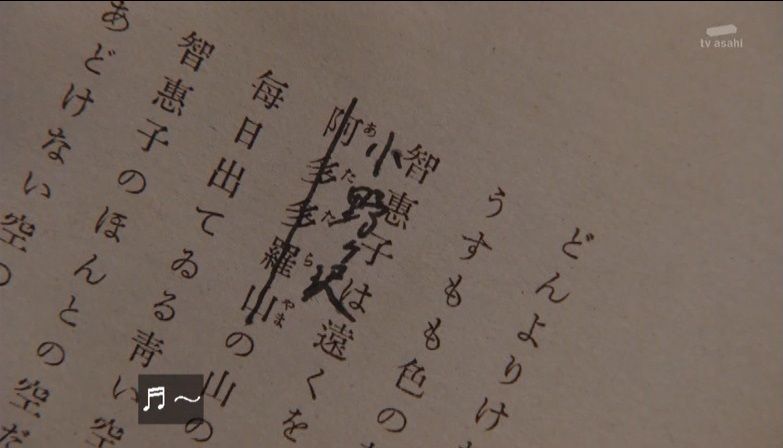 tv asahi
どんよりけ
うすもも色の
智惠子は遠くを
小野ヶ沢
あたたらやま
阿多多羅山の山の
毎日出てゐる青い空
智惠子のほんとの空だ
あどけない空の
♬〜